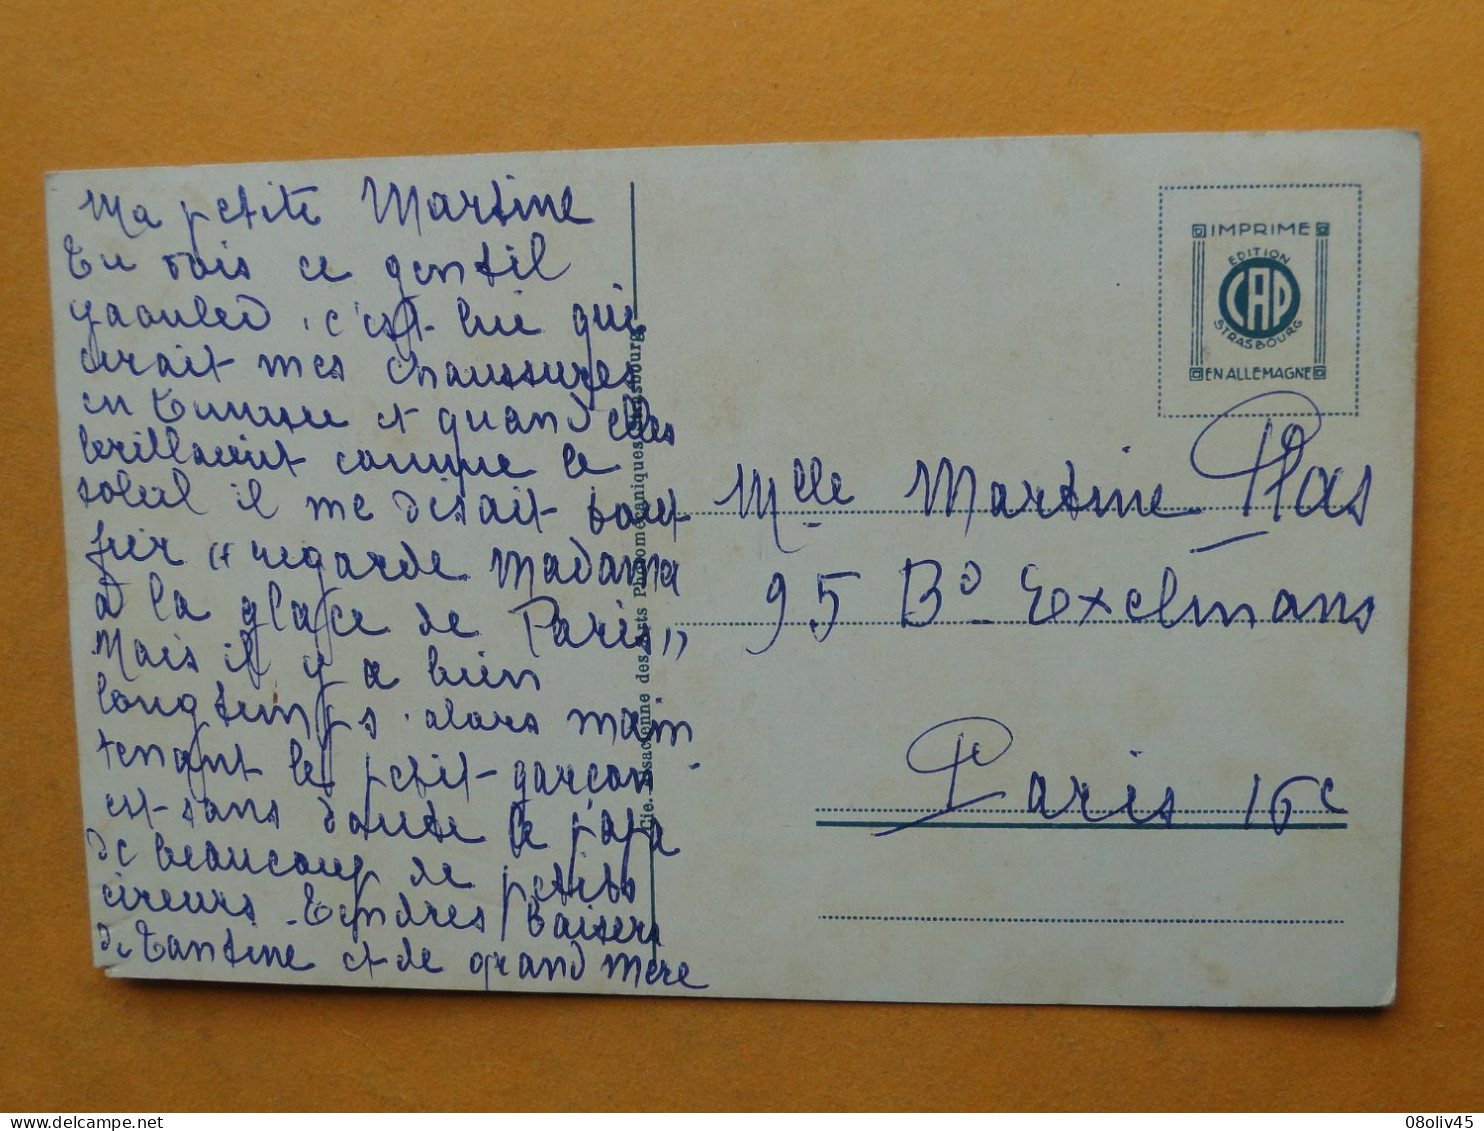 Ma petite Martine
Tu vois ce gentil
yaouled, c'est lui qui
cirait mes chaussures
en Tunisie et quand elles
brillaient comme le
soleil il me disait tout
fier " regarde madama
à la glace de Paris "
Mais il y a bien
longtemps. alors main
tenant le petit garçon
est sans doute le papa
de beaucoup de petits
cireurs. Tendres Baisers
de Tantine et de grand mère
Cie. Alsacienne des Arts Photomécaniques Strasbourg
IMPRIME
EDITION
CAP
STRASBOURG
EN ALLEMAGNE
Mlle Martine Plas
95 Bd Exelmans
Paris 16e
08oliv45